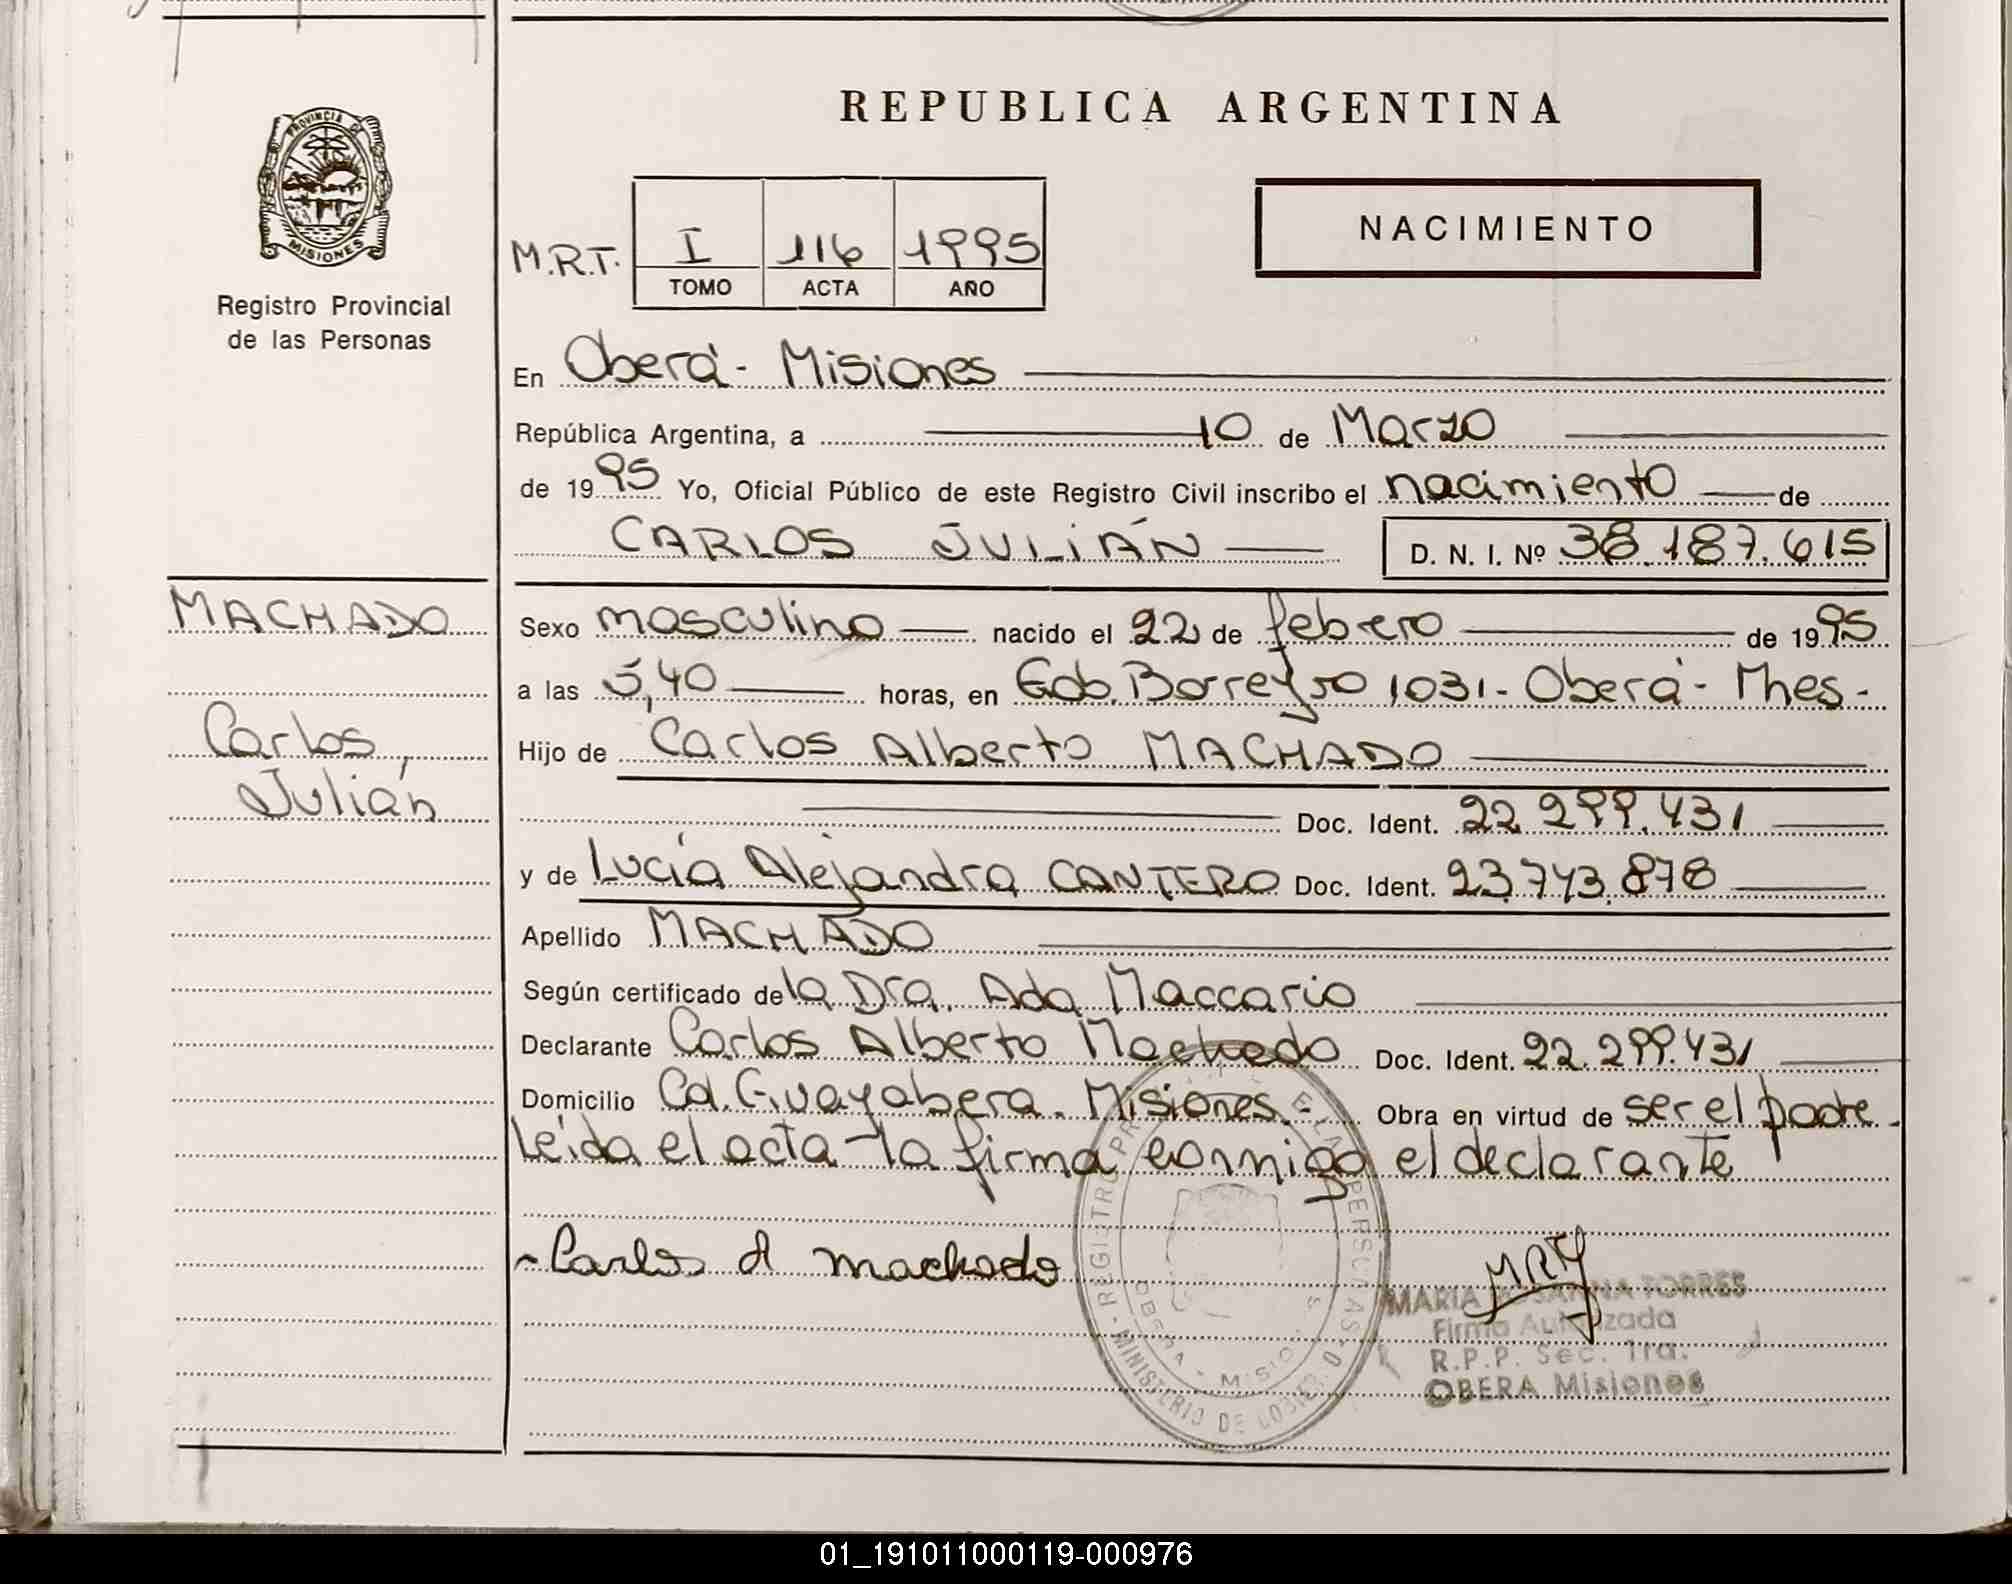 REPUBLICA ARGENTINA
PROVINCIA DE
MISIONES
Registro Provincial
de las Personas
M.R.T. I 116 1995
TOMO ACTA AÑO
NACIMIENTO
En Oberá - Misiones
República Argentina, a 10 de Marzo
de 1995 Yo, Oficial Público de este Registro Civil inscribo el nacimiento de
CARLOS JULIÁN D. N. I. Nº 38.187.615
MACHADO
Carlos,
Julián
Sexo masculino nacido el 22 de febrero de 1995
a las 5,40 horas, en Gob. Barreyro 1031 - Oberá - Mnes -
Hijo de Carlos Alberto MACHADO
Doc. Ident. 22.299.431
y de Lucía Alejandra CANTERO Doc. Ident. 23.743.878
Apellido MACHADO
Según certificado de la Dra. Ada Maccario
Declarante Carlos Alberto Machado Doc. Ident. 22.299.431
Domicilio Cd. Guayabera. Misiones.- Obra en virtud de ser el padre.
Leída el acta - la firma conmigo el declarante
- Carlos A machado
MRT
MARIA ROSANNA TORRES
Firma Autorizada
R.P.P. Sec. 1ra.
OBERA Misiones
MINISTERIO DE GOBIERNO
OBERA - MISIONES
01_191011000119-000976